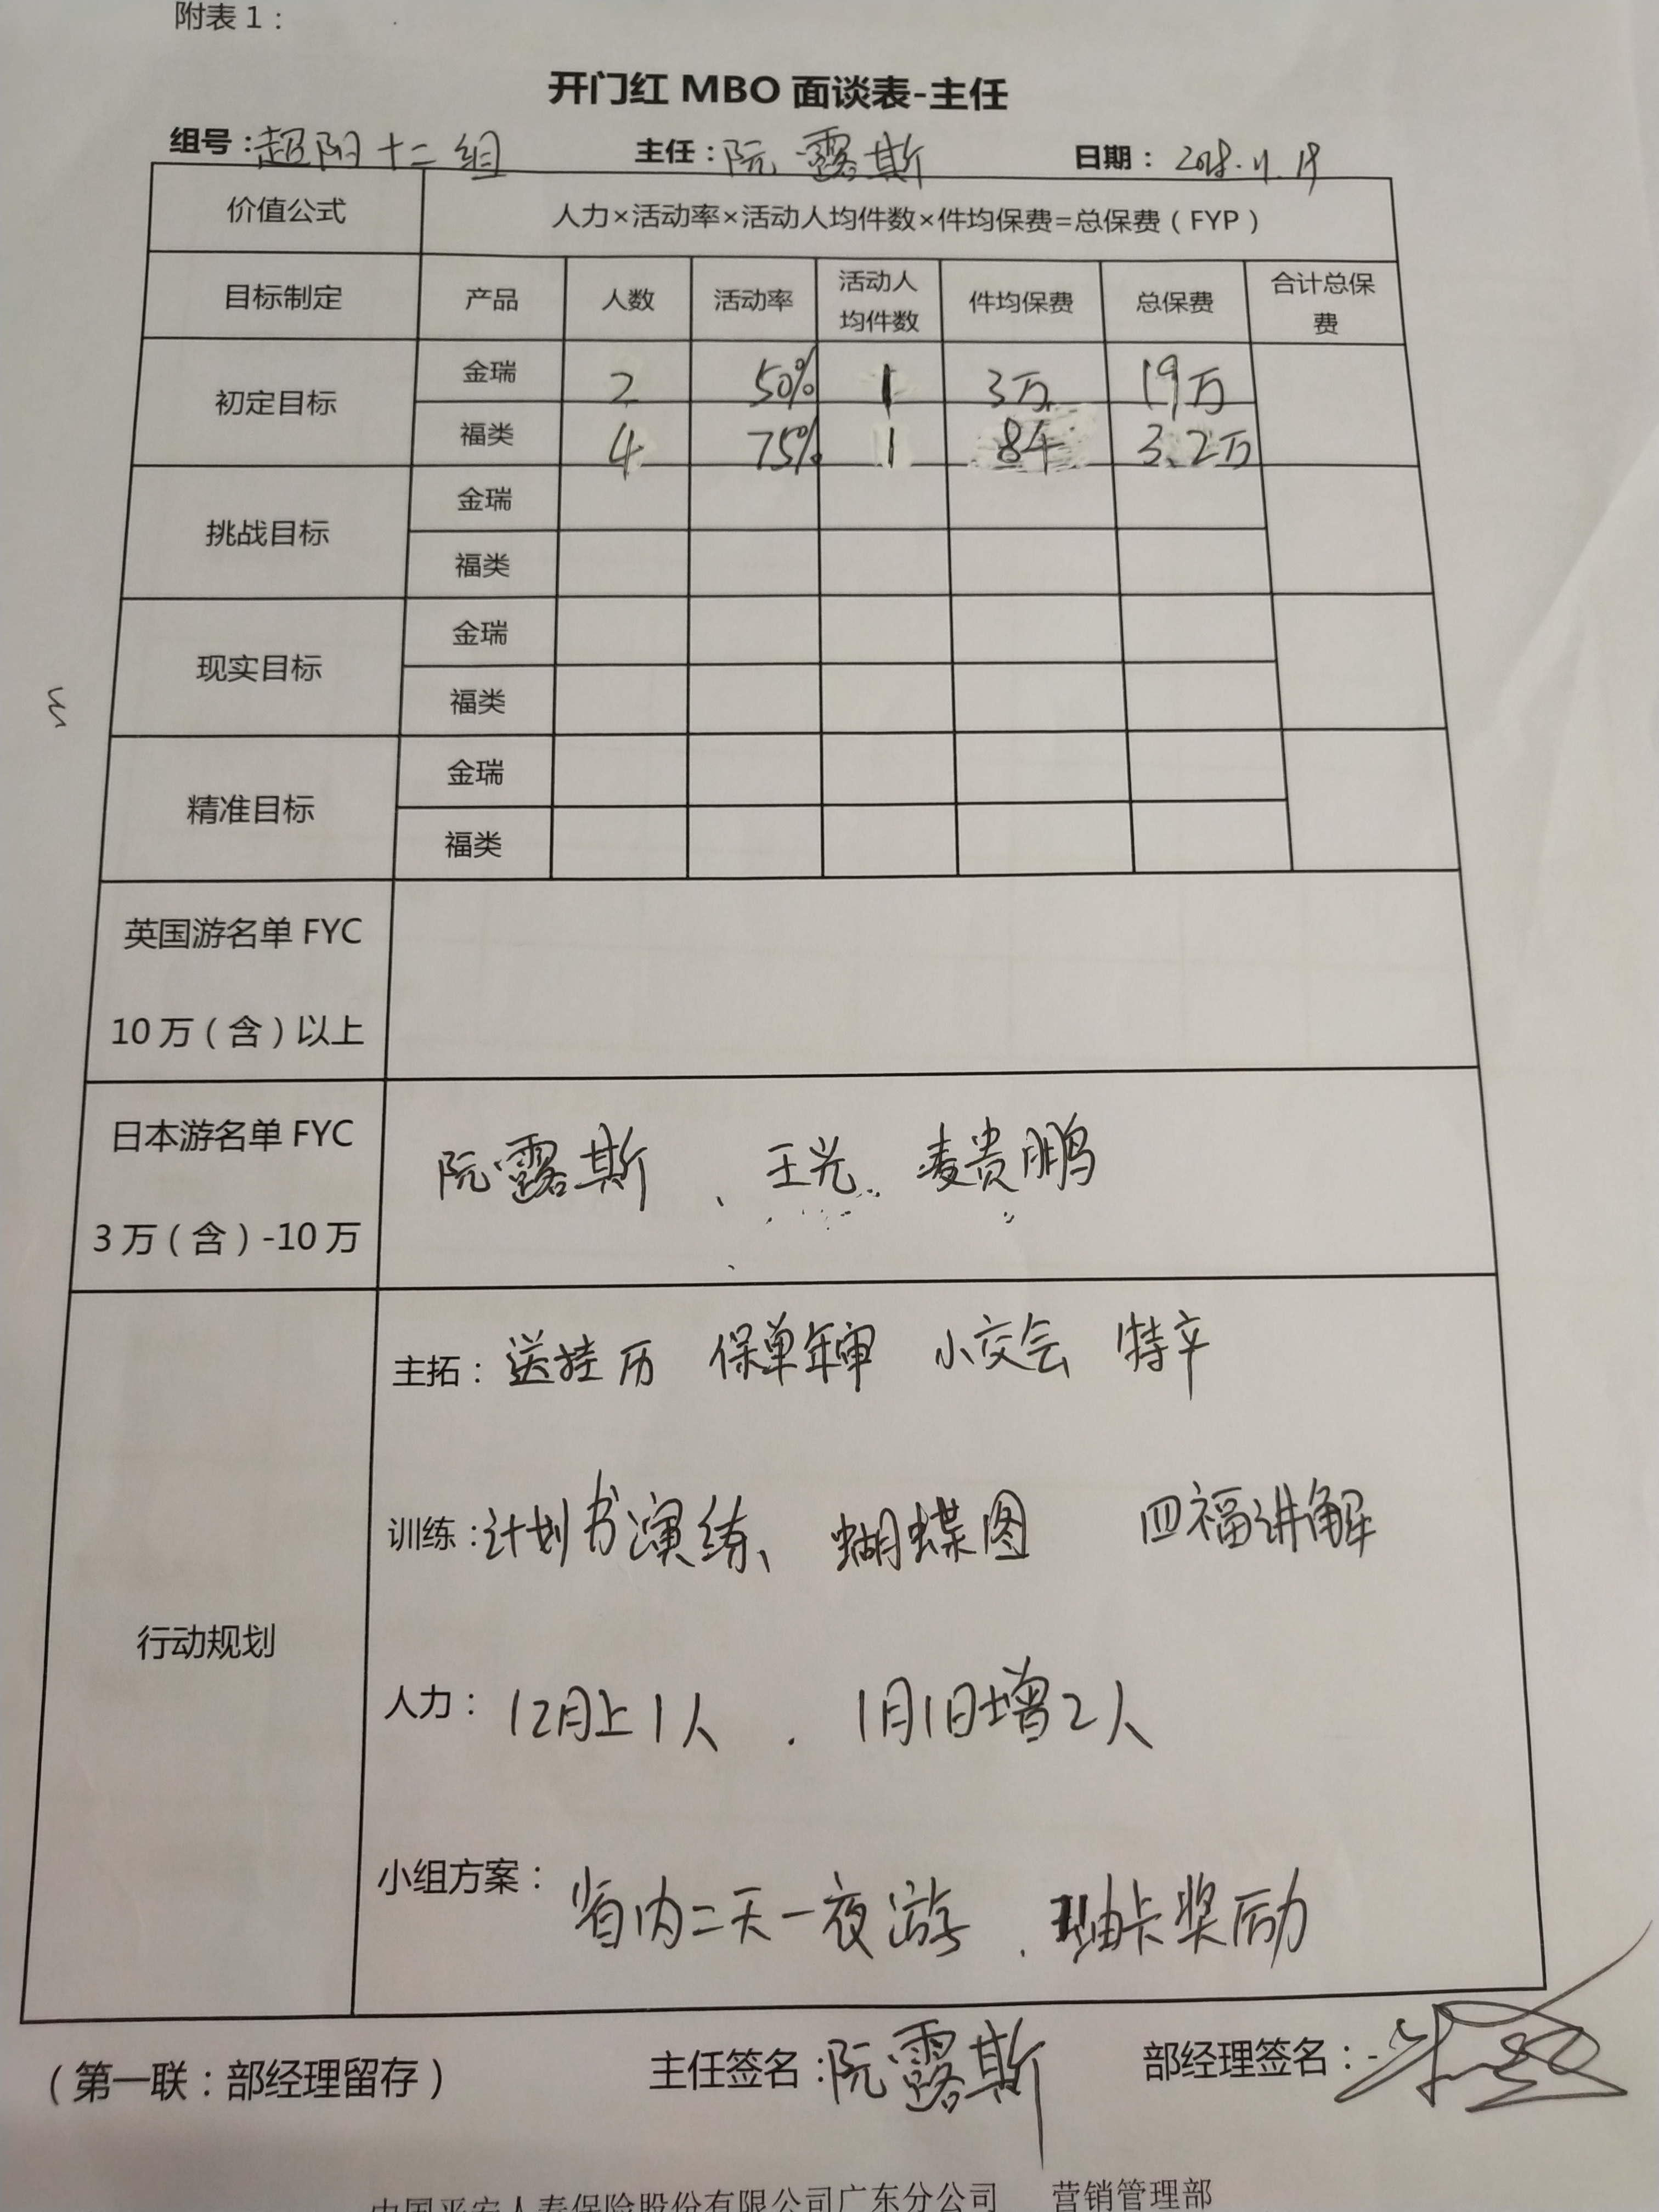 附表1：
开门红 MBO 面谈表-主任
组号：超阳十二组 主任：阮露斯 日期：2018.11.19
价值公式 人力×活动率×活动人均件数×件均保费=总保费（FYP）
目标制定 产品 人数 活动率 活动人均件数 件均保费 总保费 合计总保费
初定目标 金瑞 2 50% 1 3万 19万
福类 4 75% 1 84 3.2万
挑战目标 金瑞
福类
现实目标 金瑞
福类
精准目标 金瑞
福类
英国游名单 FYC
10万（含）以上
日本游名单 FYC
3万（含）-10万
阮露斯、王光、麦贵鹏
行动规划
主拓：送挂历 保单年审 小交会 特辛
训练：计划书演练、蝴蝶图 四福讲解
人力：12月上1人．1月1日增2人
小组方案：省内二天一夜游．抽卡奖励
（第一联：部经理留存） 主任签名：阮露斯 部经理签名：
中国平安人寿保险股份有限公司广东分公司 营销管理部